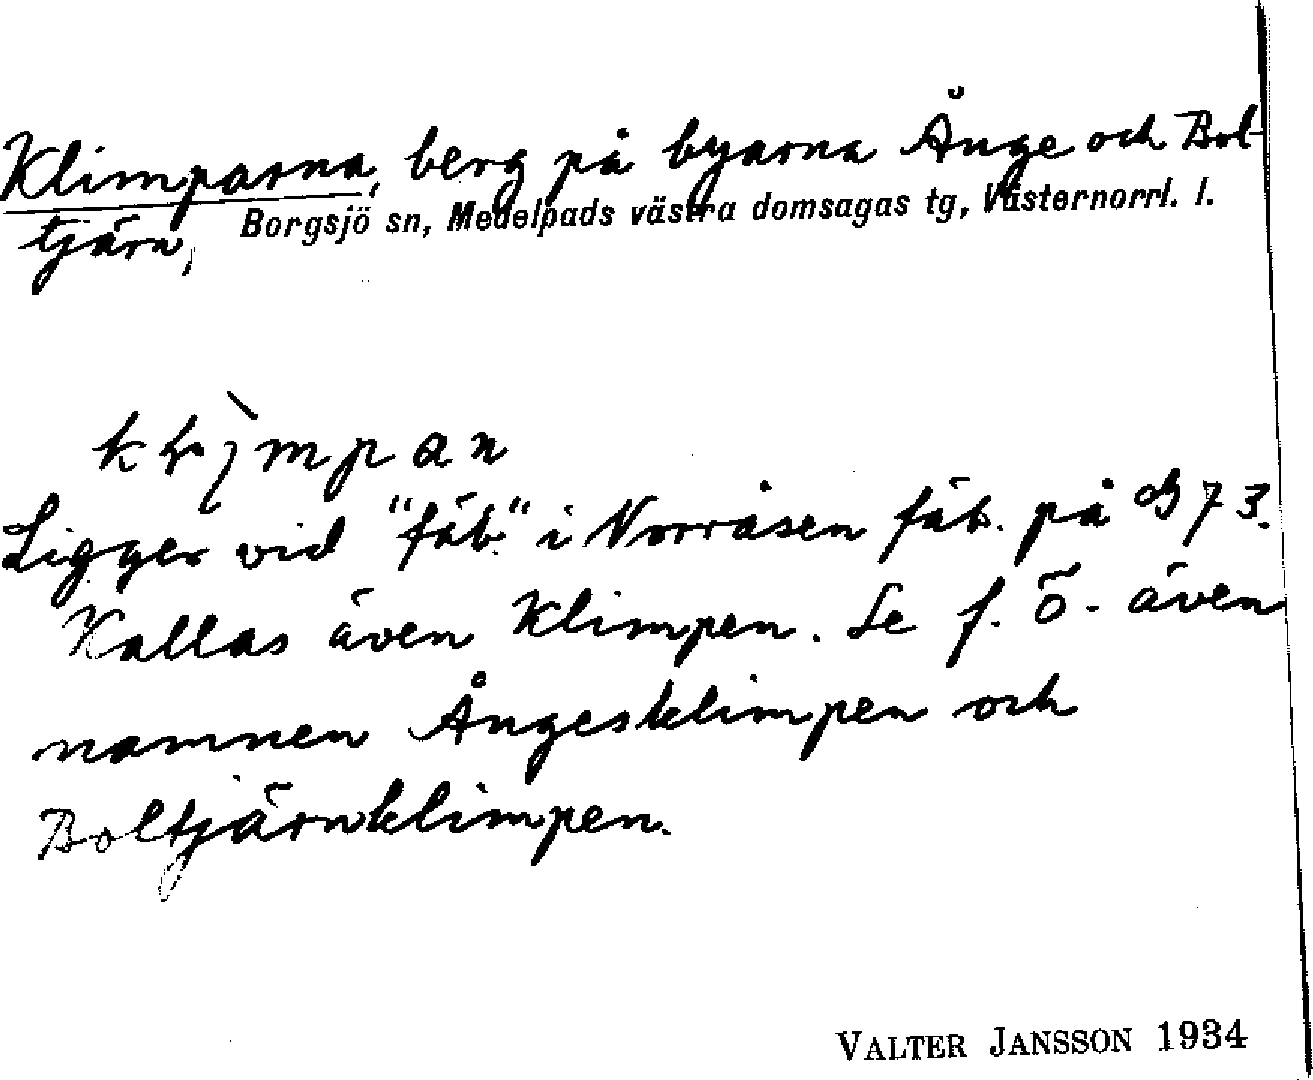 Klimparna, berg på byarna Ånge och Bol-
tjärn, Borgsjö sn, Medelpads västra domsagas tg, Västernorrl. l.
Ligger vid "fäb." i Norråsen fäb. på 73.
Kallas även Klimpen. Se f. ö. även
namnen Ångesklimpen och
Boltjärnklimpen.
VALTER JANSSON 1934